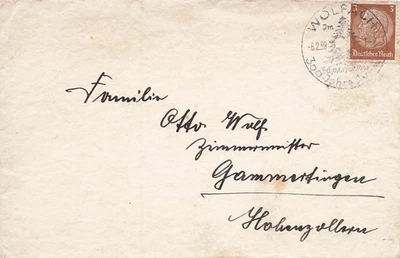 WOLFACH
Im
-8.2.39
300 Jahre
3 3
Deutsches Reich
Familie
Otto Wolf
Zimmermeister
Gammertingen
Hohenzollern